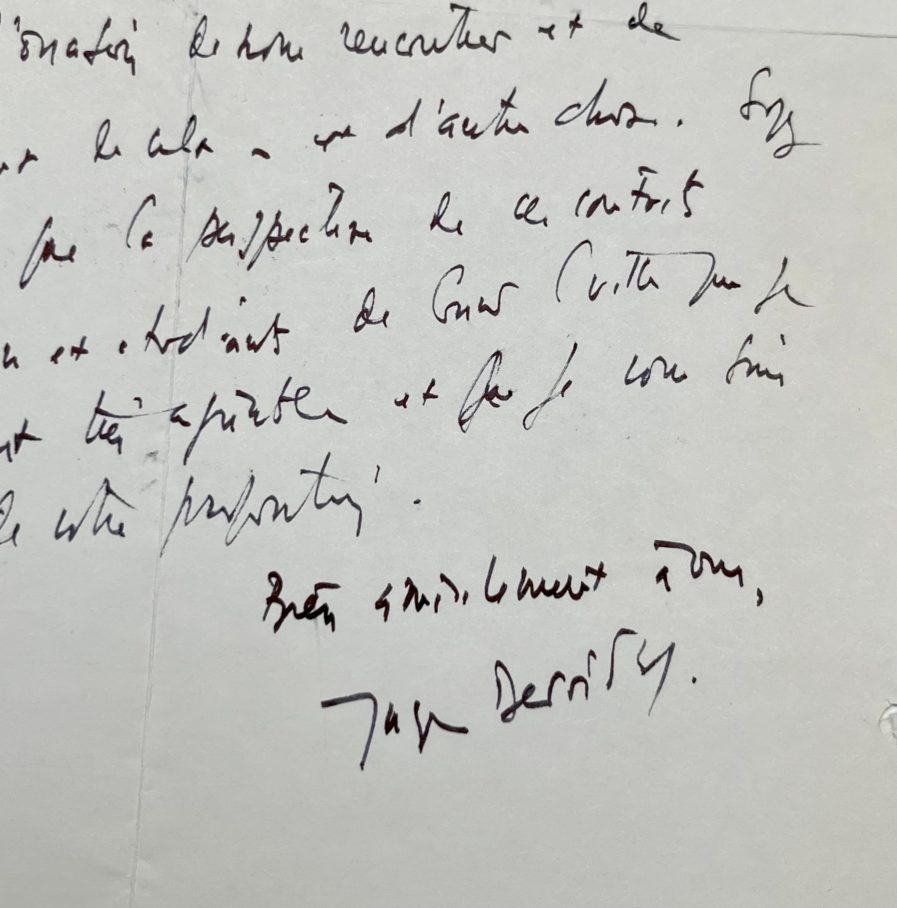 l'occasion de nous rencontrer et de
de cela - et d'autre chose. Soyez
que la perspective de ces contacts
et étudiants de (ville que je
très agréable et que je vous suis
de votre proposition.
Bien amicalement à vous,
Jacques Derrida.